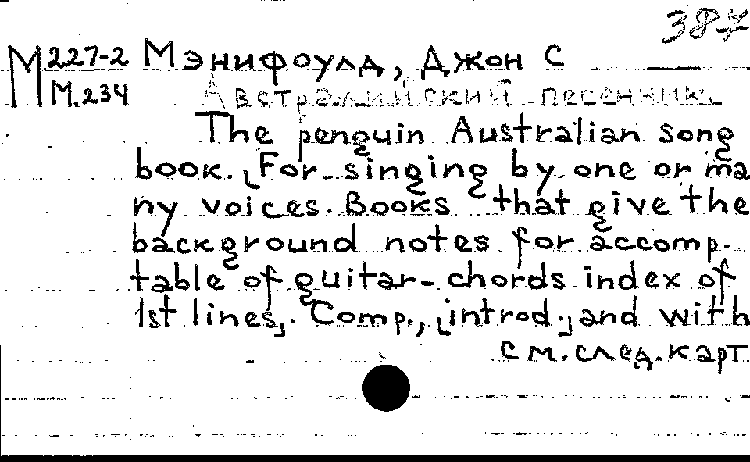 387
М 227-2 Мэнифоулд, Джон С
М.234 Австралийский песенник.
The penguin Australian song
book. [For singing by one or ma
ny voices. Books that give the
background notes for accomp.
table of guitar-chords index of
1st lines]. Comp., [introd.] and with
см. след. карт